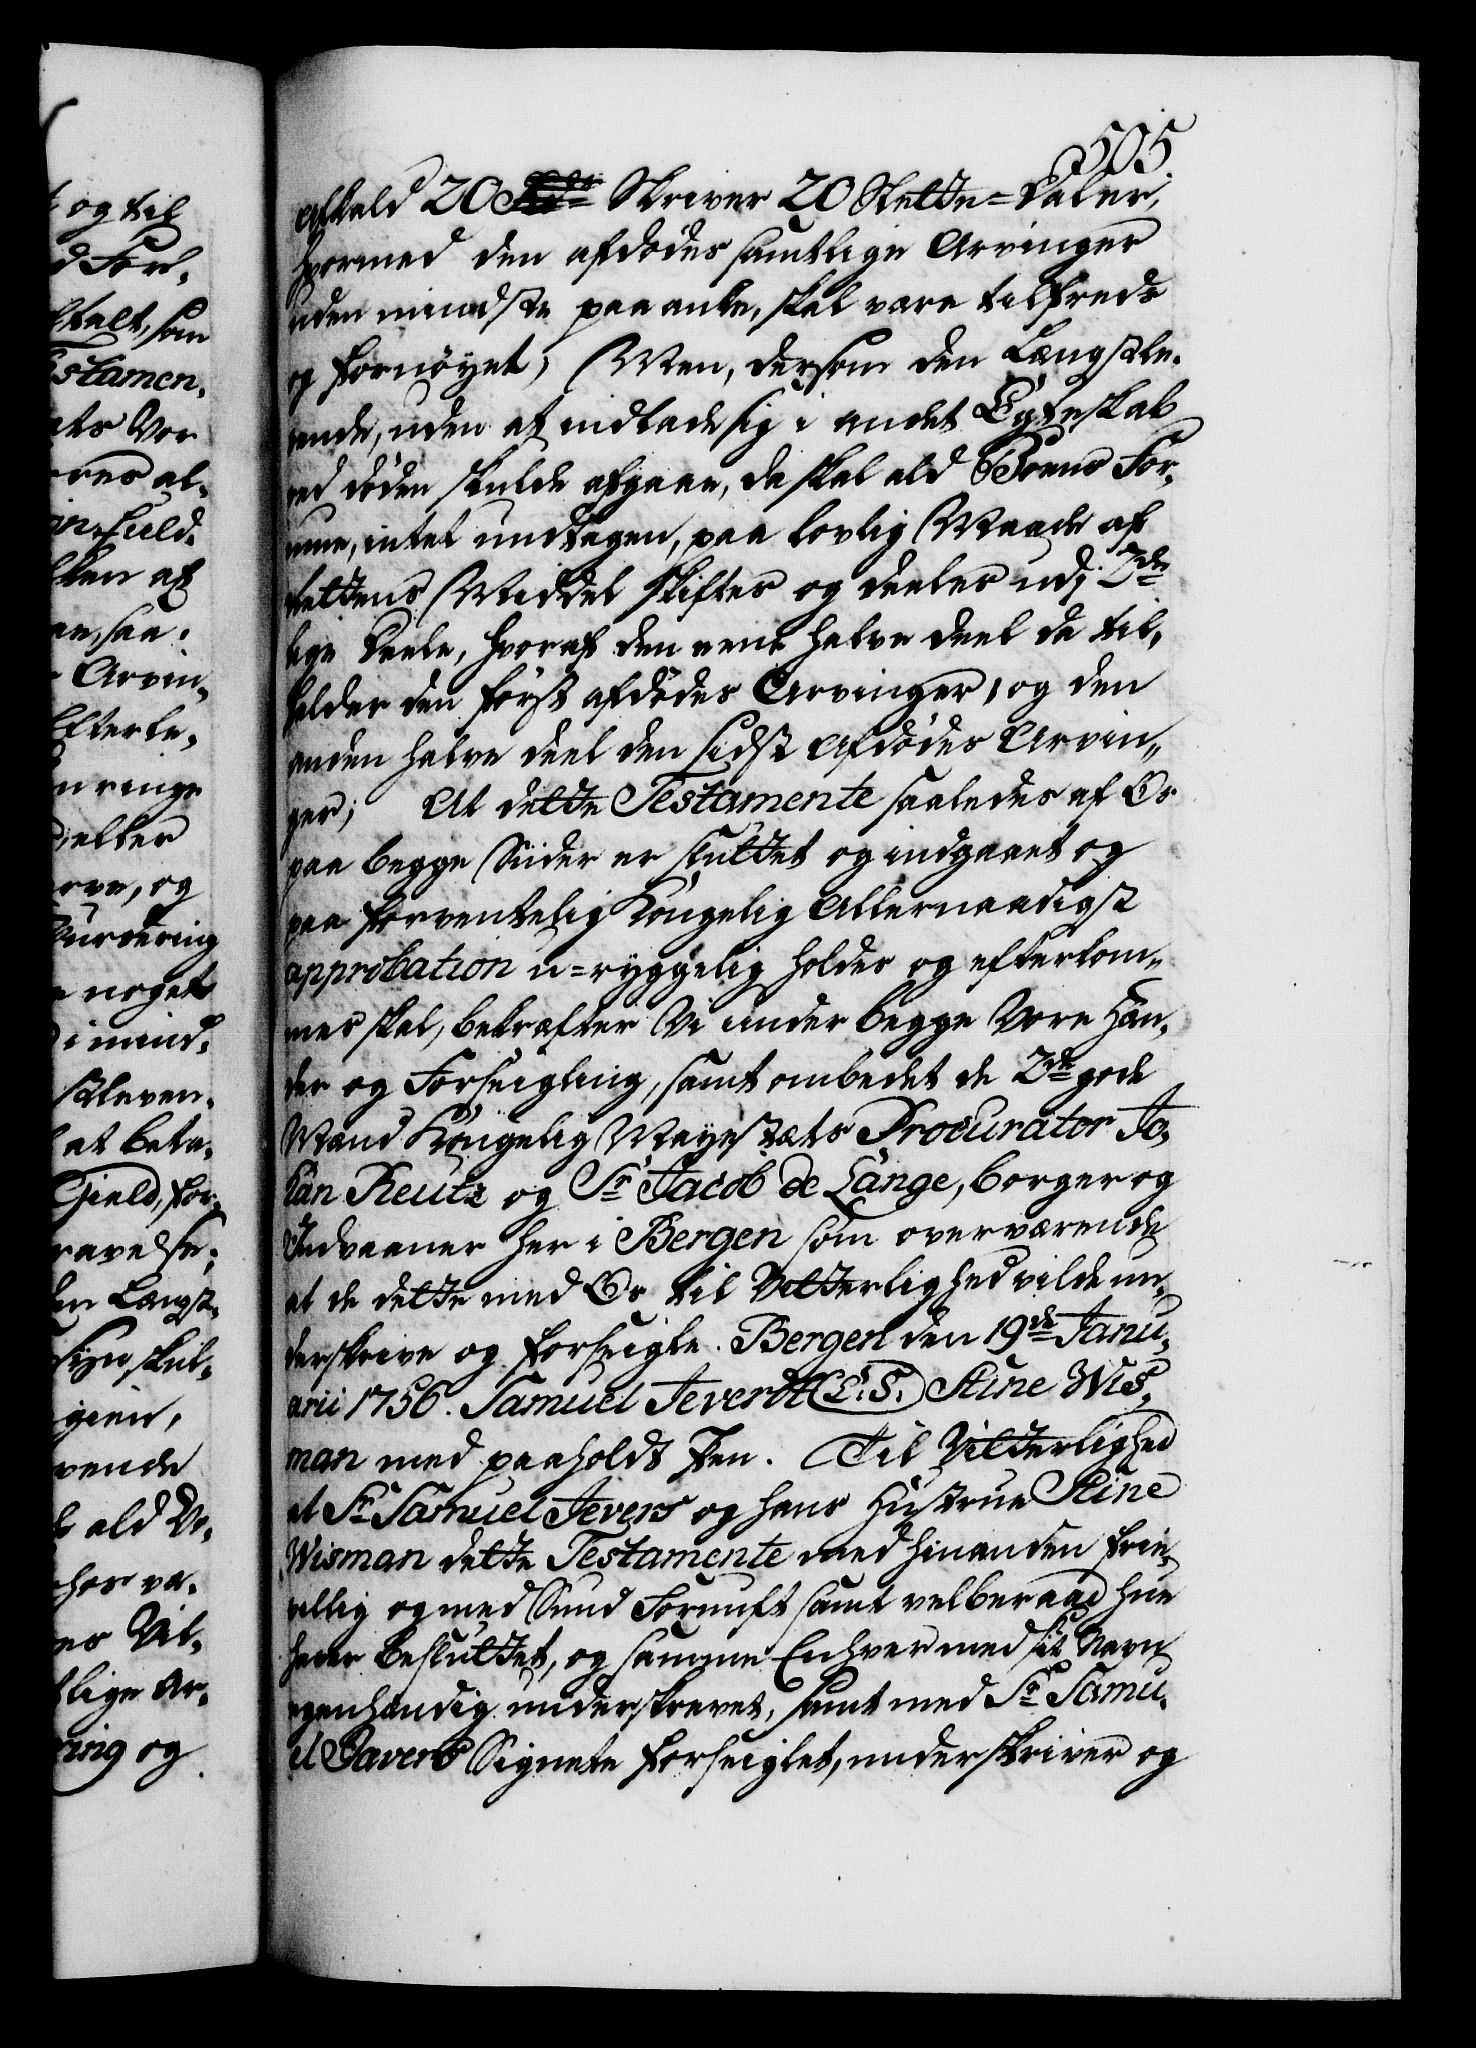 505.
Afkald 20 Skriver 20 Slette=Daler,
hvormed den afdødes samtlige Arvinger
uden mindste paaanke, skal være tilfreds
og fornøyet; Men, dersom den Længstle,
vende, uden at indlade sig i andet Egteskab
ved døden skulde afgaae, da skal ald Boens For,
mue, intet undtagen, paa lovlig Maade af
Rettens Middel skiftes og deeles udj 2de
lige Deele, hvoraf den eene halve deel da til,
falder den først afdødes Arvinger, og den
anden halve deel den sidst Afdødes Arvin,,
ger; At dette Testamente saaledes af Os
paa begge Siider er sluttet og indgaaet og
paa forventelig Kongelig Allernaadigst
approbation u=ryggelig holdes og efterkom,,
mes skal, bekræfter Vi under begge Vore Hæn,
der og Forseigling, samt ombedet de 2de gode
Mænd Kongelig Mayestæts Procurator Jo,
han Reutz og Sr Jacob de Lange, borger og
Indvaaner her i Bergen som overværende
at de dette med Os til Vitterlighed vilde un,
derskrive og forseigle. Bergen den 19de Janu,
arii 1756. Samuel Jeverdt (L.S.) Stine Wis,
man med paaholdt Pen. Til Vitterlighed
at Sr Samuel Jevers og hans Hustrue Stine
Wisman dette Testamente med hinanden frie,
villig og med Sund Fornuft samt velberaad Hue
heder besluttet, og samme Enhver med sit Navn
egenhændig underskrevet, samt med Sr Samu,
el Javers Signete forseiglet, underskriver og